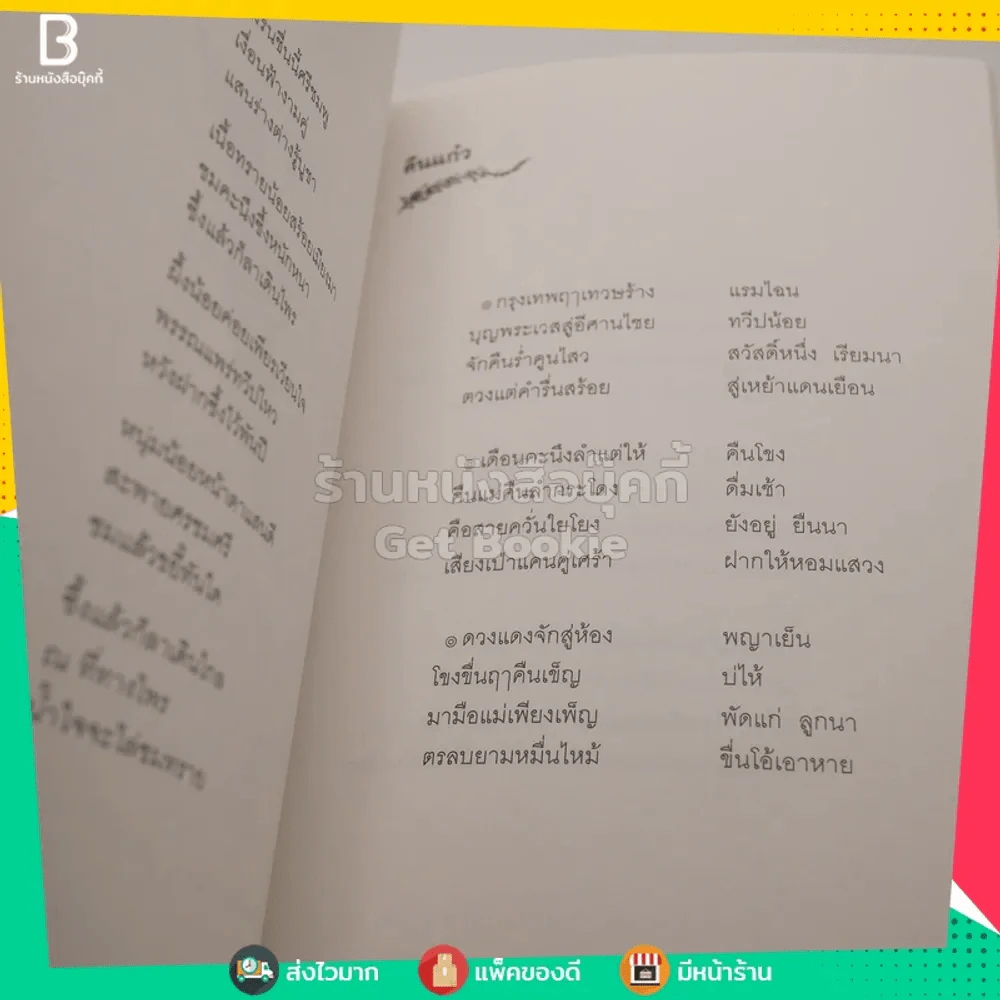 B
ร้านหนังสือบุ๊คกี้
เงื่อนฟ้างามคู่
แสนร่างต่างรู้บูชา
เนื้อทรายน้อยสร้อยเมียงมา
ชมคะนึงซึ้งหนักหนา
ซึ้งแล้วก็ลาเดินไพร
ผึ้งน้อยค่อยเพียรเวียนใจ
พรรณแพร่ทวีปไหว
หวังฝากซึ้งไว้พันปี
หนุ่มน้อยหน้าตาแสนดี
สะพายศรชมศรี
ชมแล้วขยี้ทันใด
ซึ้งแล้วก็ลาเดินไกล
ณ ที่ทางไพร
คืนแก้ว
๏ กรุงเทพฤๅเทวษร้าง แรมไฉน
บุญพระเวสสู่อีศานไชย ทวีปน้อย
จักคืนร่ำคูนไสว สวัสดิ์หนึ่ง เรียมนา
ตวงแต่คำรื่นสร้อย สู่เหย้าแดนเยือน
๏ เดือนคะนึงลำแต่ให้ คืนโขง
คืนแม่คืนลำกระโดง ดื่มเช้า
คือสายควันใยโยง ยังอยู่ ยืนนา
เสียงเป่าแคนคู่เศร้า ฝากให้หอมแสวง
๏ ดวงแดงจักสู่ห้อง พญาเย็น
โขงขื่นฤๅคืนเข็ญ บ่ไห้
มามือแม่เพียงเพ็ญ พัดแก่ ลูกนา
ตรลบยามหมื่นไหม้ ขื่นโอ้เอาหาย
ร้านหนังสือบุ๊คกี้
Get Bookie
ส่งไวมาก
แพ็คของดี
มีหน้าร้าน